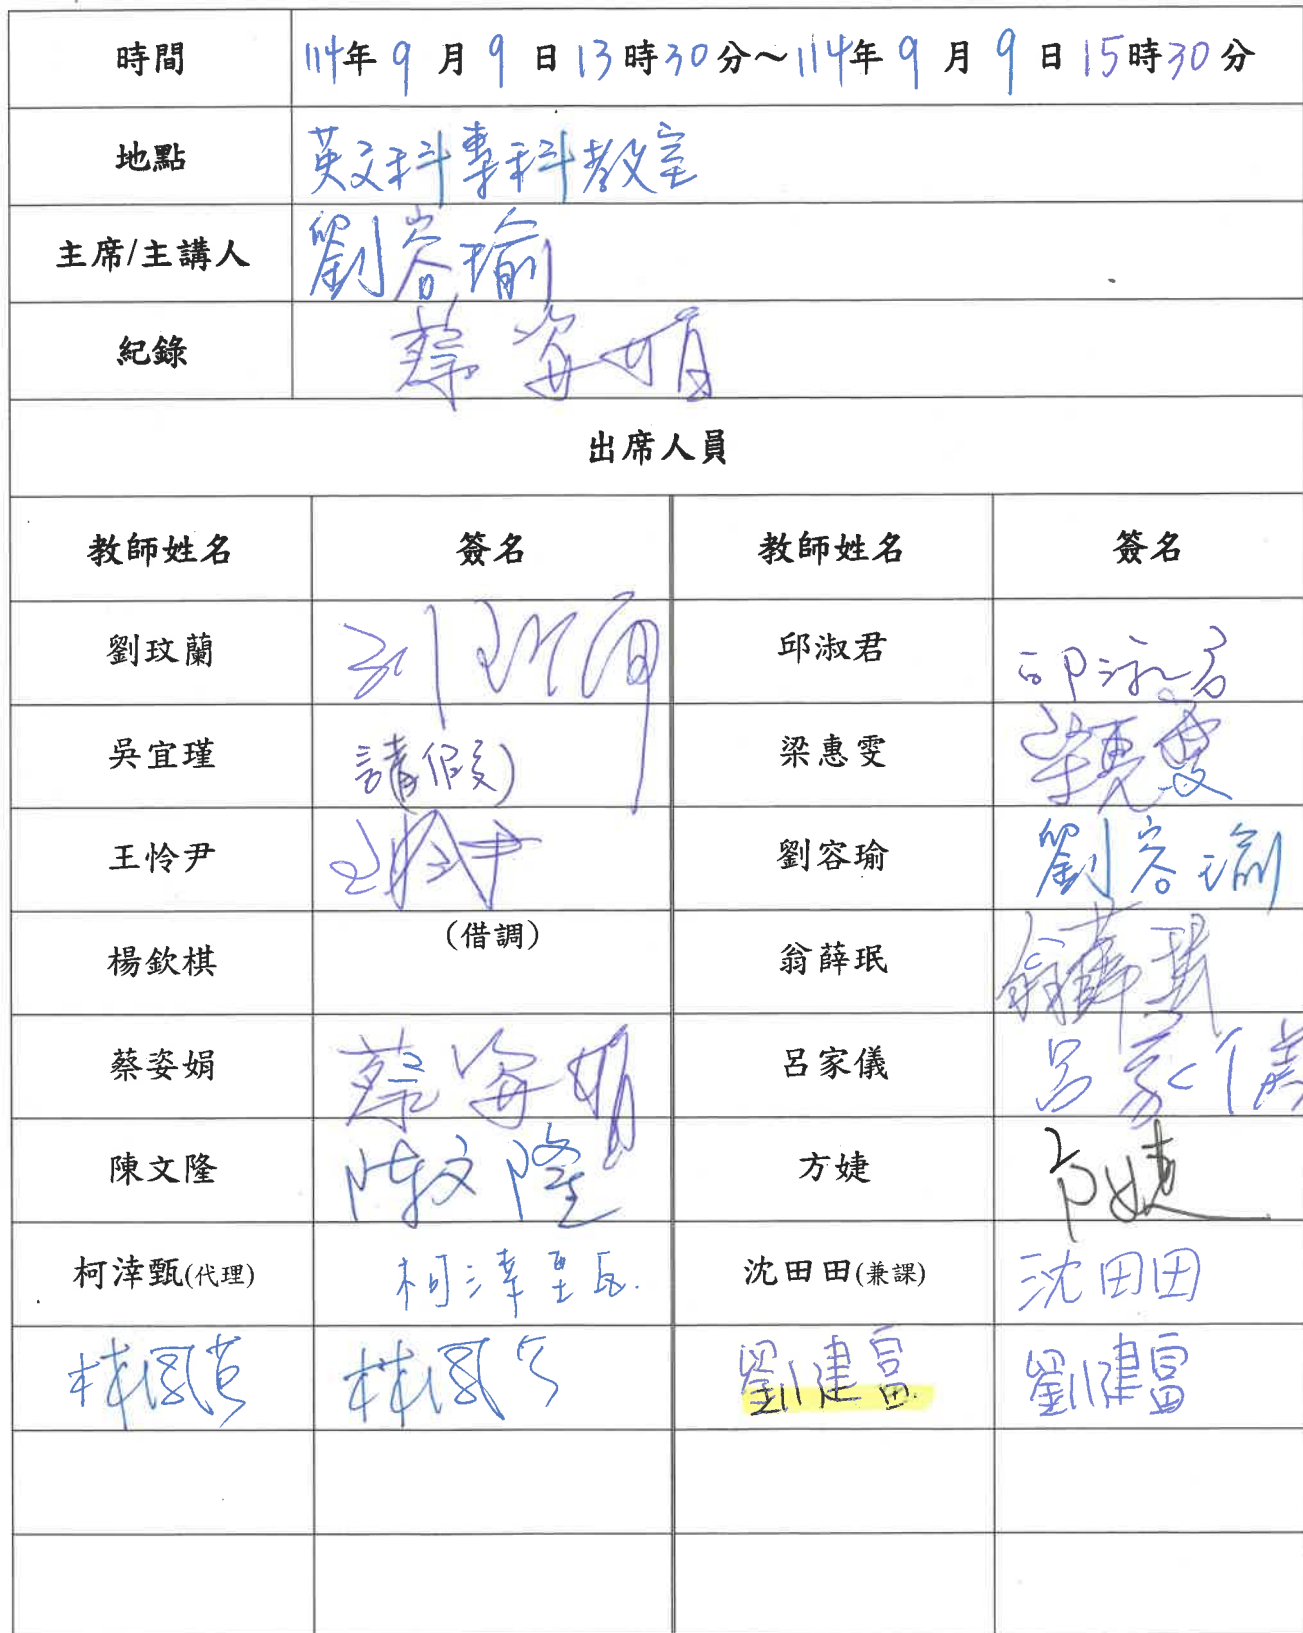 時間 114年9月9日13時30分～114年9月9日15時30分
地點 英文科專科教室
主席/主講人 劉容瑜
紀錄 蔡姿娟
出席人員
教師姓名 簽名 教師姓名 簽名
劉玟蘭 邱淑君 邱淑君
吳宜瑾 請假) 梁惠雯 梁惠雯
王怜尹 王怜尹 劉容瑜 劉容瑜
楊欽棋 (借調) 翁薛珉 翁薛珉
蔡姿娟 蔡姿娟 呂家儀 呂家儀
陳文隆 陳文隆 方婕 方婕
柯涬甄(代理) 柯涬甄 沈田田(兼課) 沈田田
劉建富 劉建富